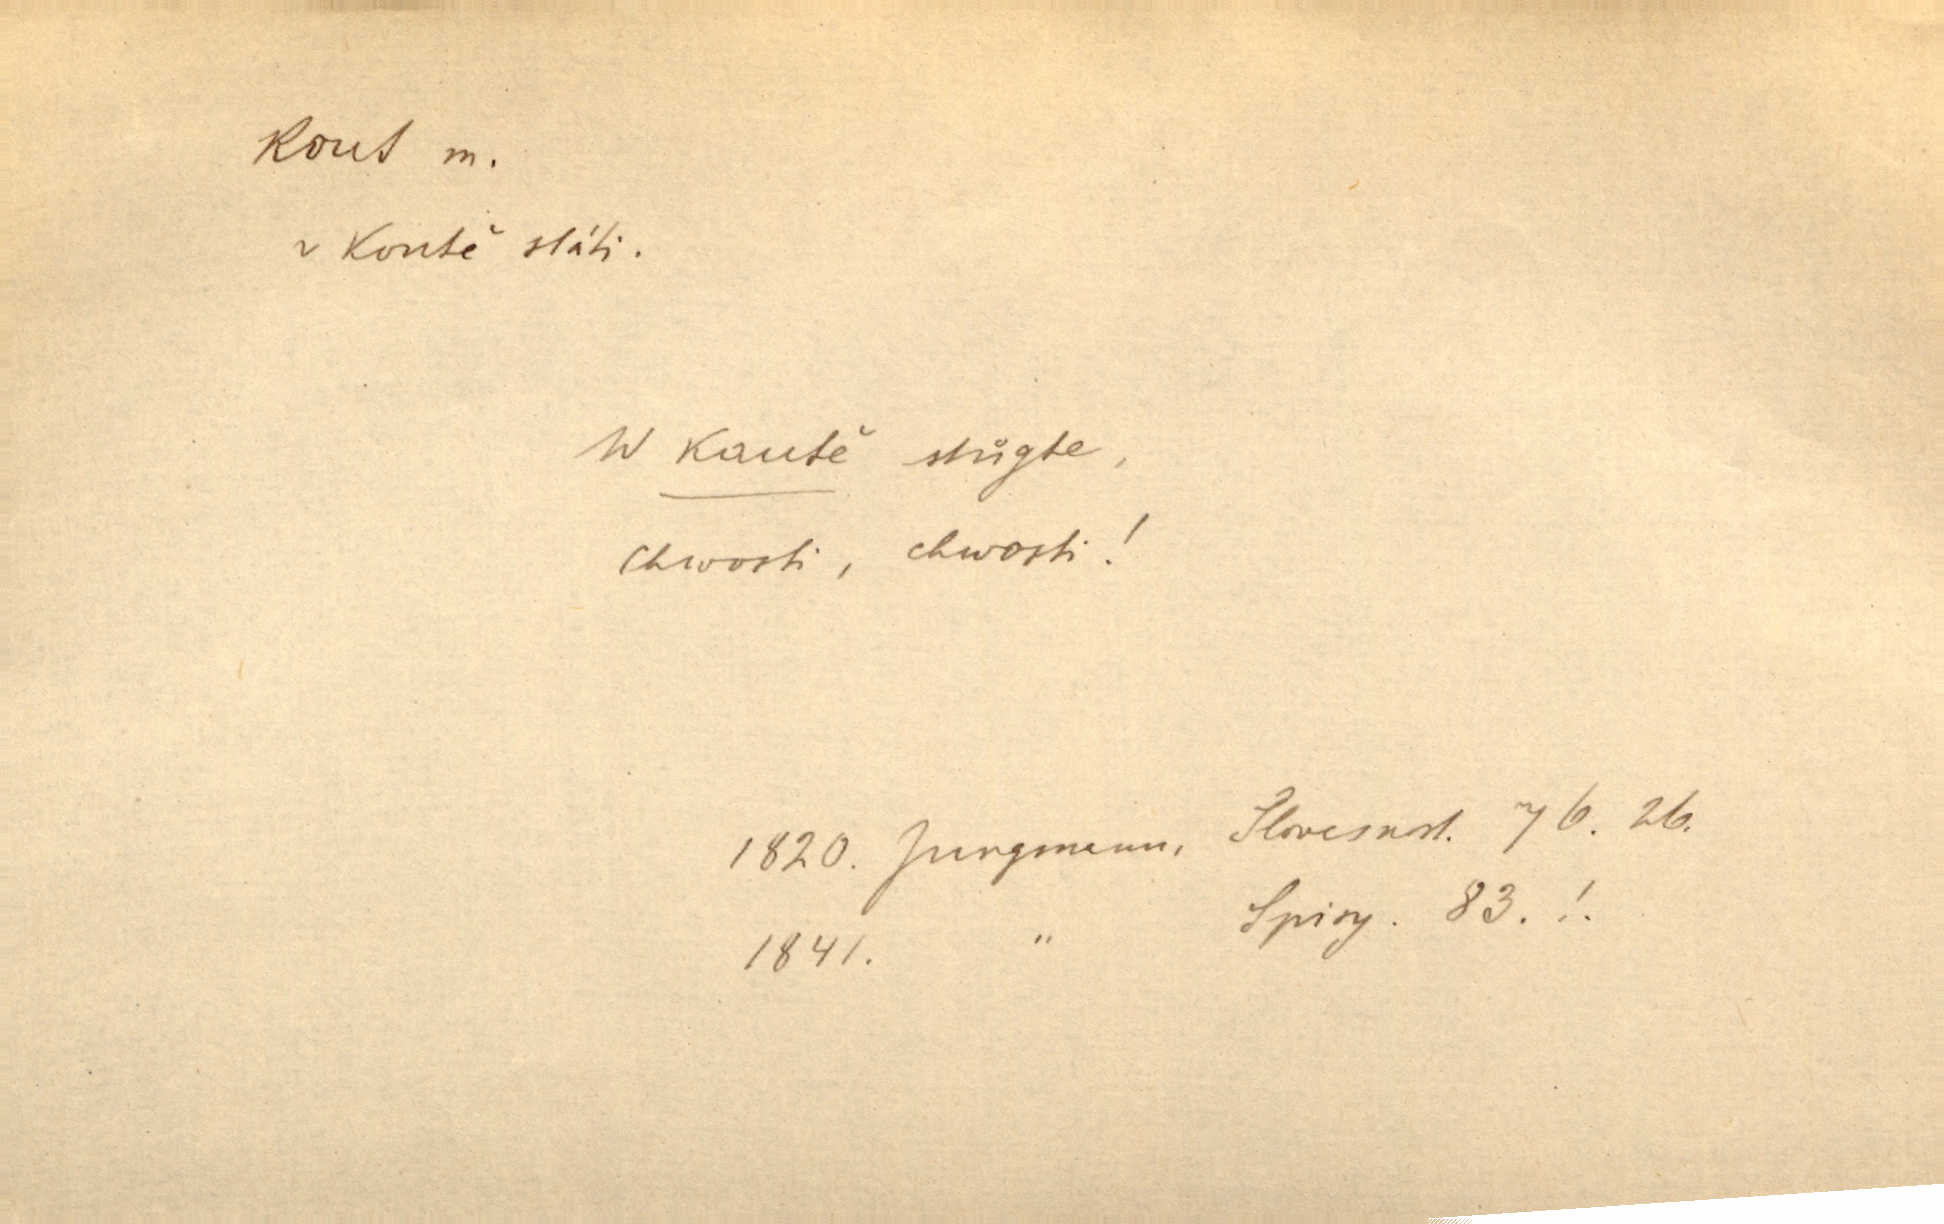 Kout m.
v koutě státi.
W kautě stůgte,
chwosti, chwosti!
1820. Jungmann, Slovesnost. 76. 26.
1841. " Spisy. 83. !.